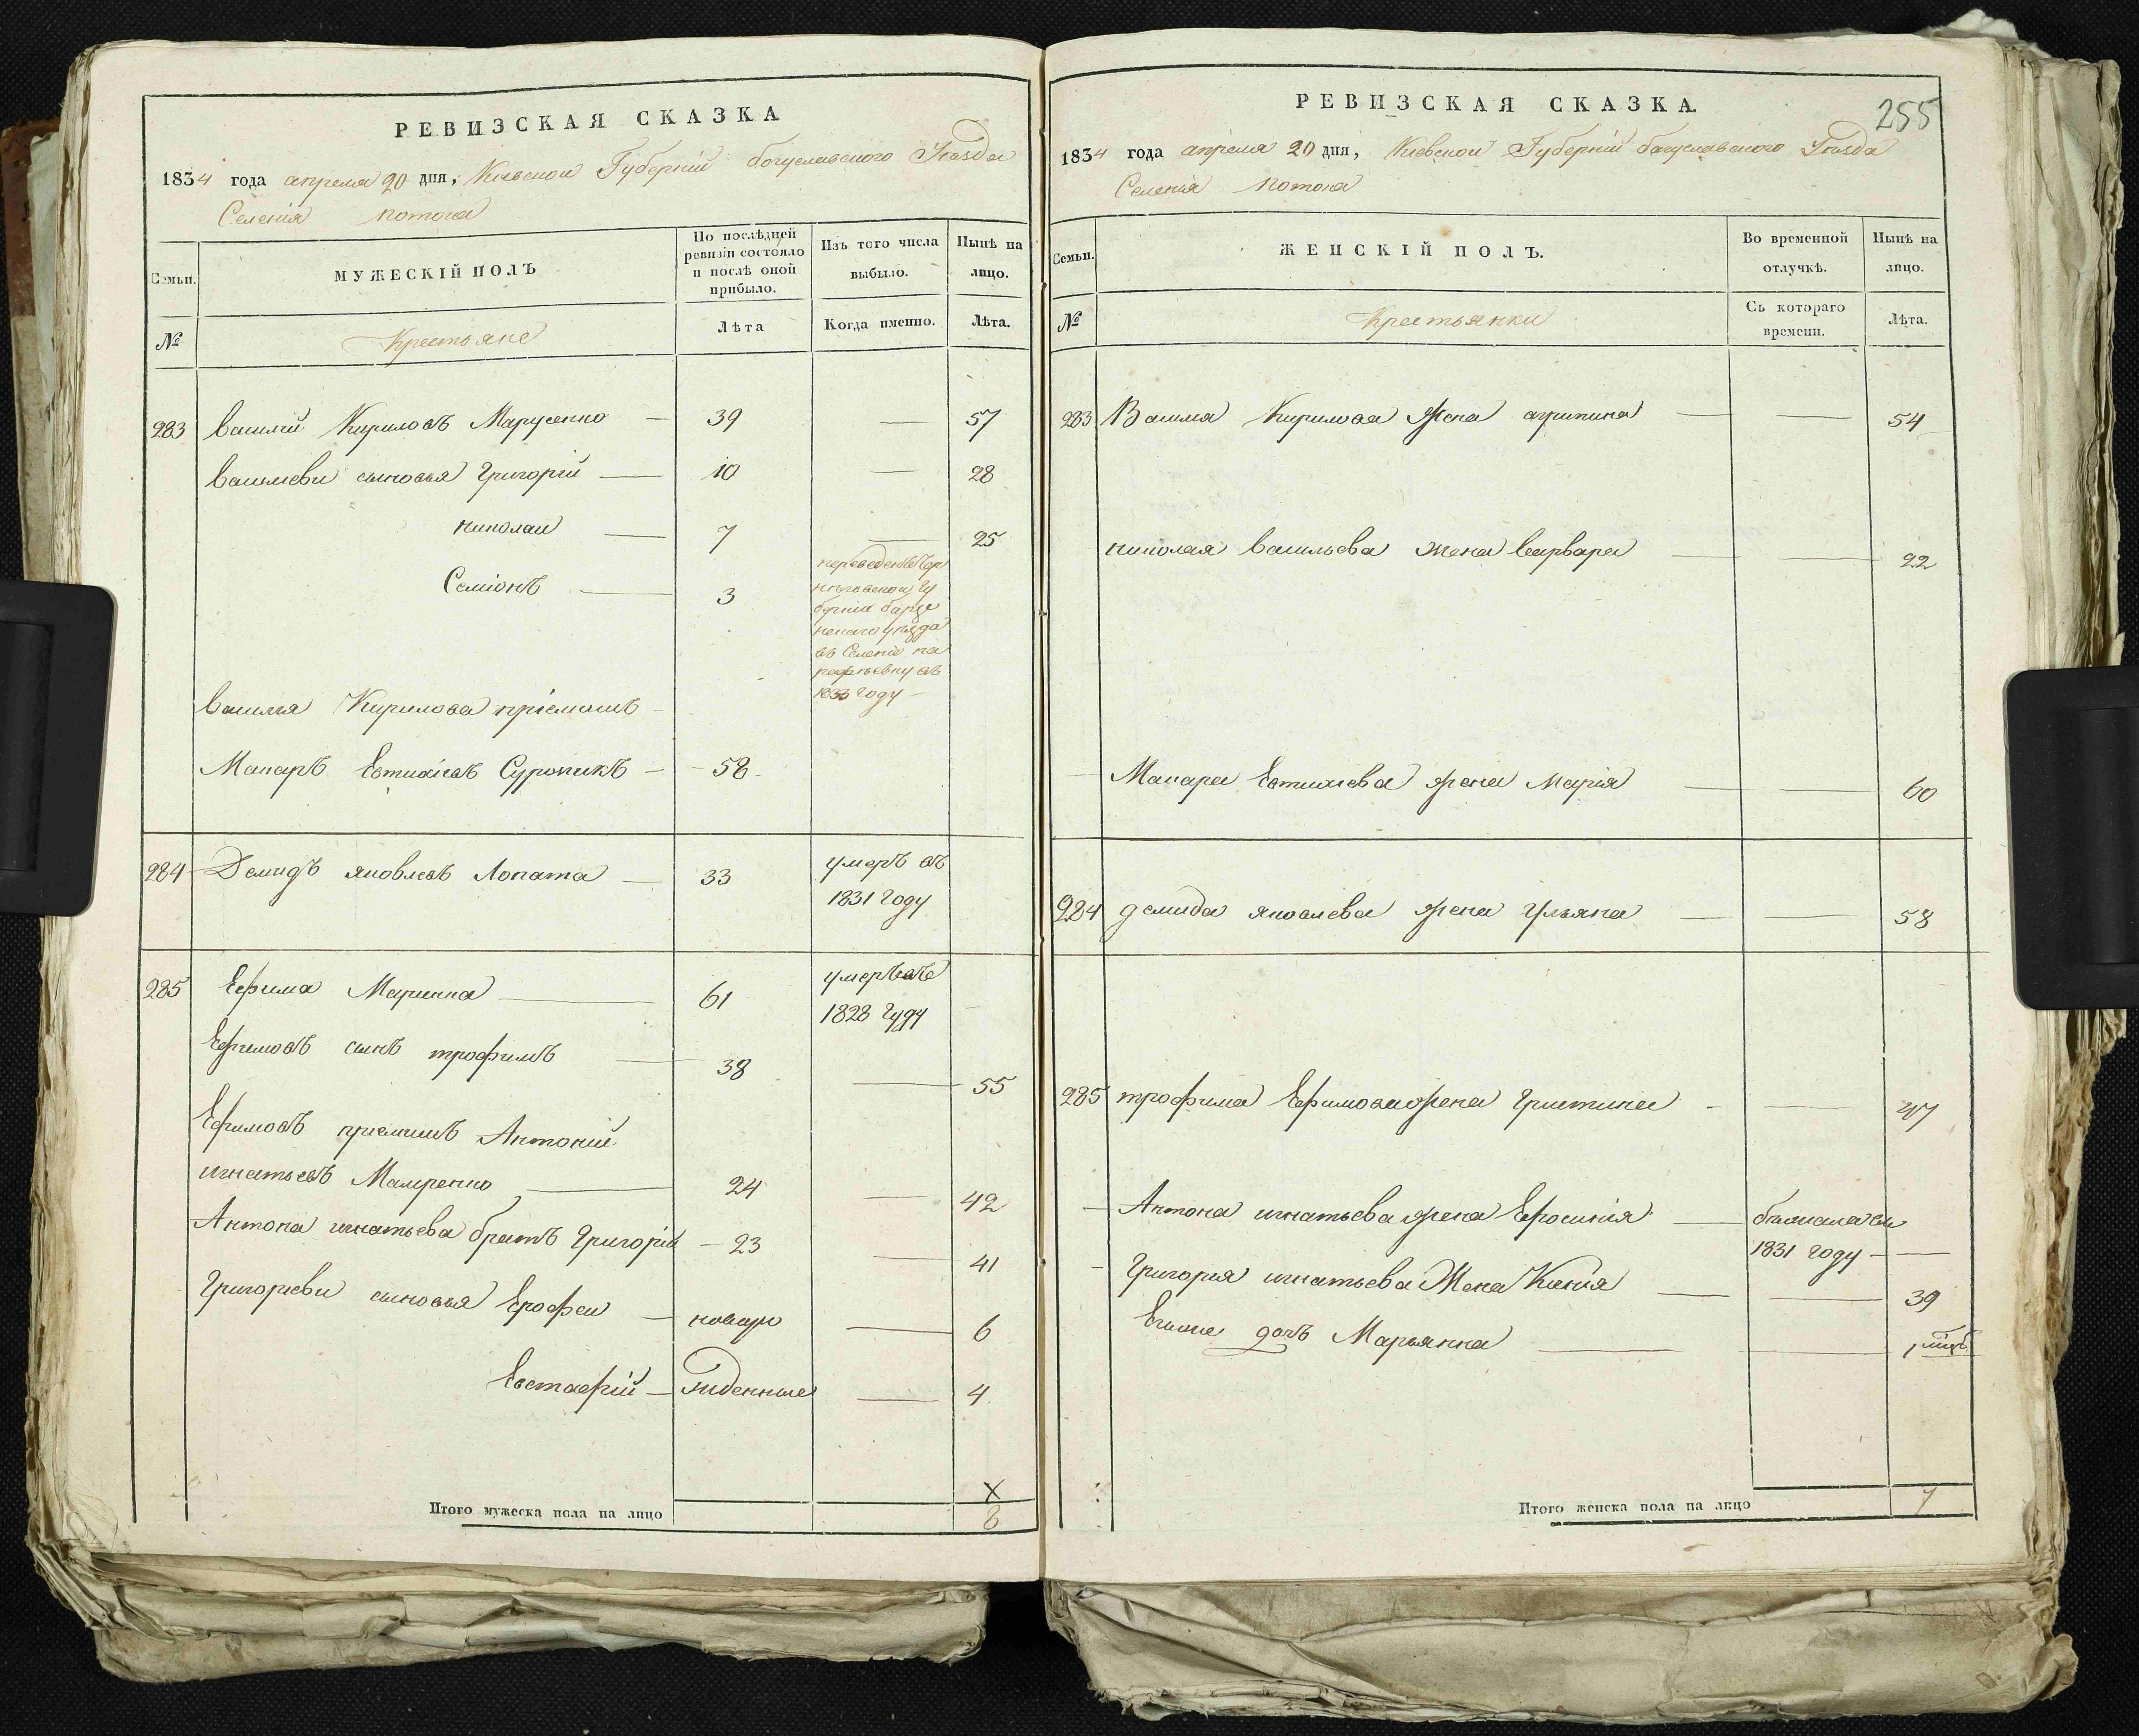 РЕВИЗСКАЯ СКАЗКА
1834 года апреля 20 дня, Кіевской Губерніи богуславского Уезда
Селенія Потока
Семьи.
МУЖЕСКІЙ ПОЛЪ
По послѣдней ревизіи состояло и послѣ оной прибыло.
Изъ того числа выбыло.
Нынѣ на лицо.
№
Крестьяне
Лѣта
Когда именно.
Лѣта.
283 Василий Кириловъ Марусенко — 39 — 57
Василиеви сыновья Григорій — 10 — 28
николаи — 7 — 25
Семіонъ — 3
переведенъ Чер
ниговской Гу
берніи борзе
нского уезда
въ Селеніе
въ
1833 году —
Василия Кирилова пріемышъ —
Макаръ Евтихіевъ — 58
284 Демидъ яковлевъ Лопата — 33 умеръ въ
1831 году
285 Ефима Маринка — 61 умеръ въ
1828 гуду
Ефимовъ сынъ трофимъ — 38 — 55
Ефимовъ приемишъ Антоній
игнатьевъ — 24 — 42
Антона игнатьева братъ Григорій — 23 — 41
Григориеви сыновья Ерофеи — новоро — 6
Евстафій — жденные — 4
х
Итого мужеска пола на лицо 8
255
РЕВИЗСКАЯ СКАЗКА.
1834 года апреля 20 дня, Кіевской Губерніи богуславского Уезда
Селенія Потока
Семьи.
ЖЕНСКІЙ ПОЛЪ.
Во временной отлучкѣ.
Нынѣ на лицо.
№
Крестьянки
Съ котораго времени.
Лѣта.
283 Василия Кирилова жена агрипина — — 54
николая Васильева жена Варвара — — 22
Макара Евтихиева жена Марія — — 60
284 демида яковлева жена Ульяна — — 58
285 трофима Ефимова жена Християна — — 47
Антона игнатьева жена Ефросинія —
1831 году — —
Григория игнатьева Жена Ксенія — — 39
Егоже дочь Марьянна — — 1
Итого женска пола на лицо 7